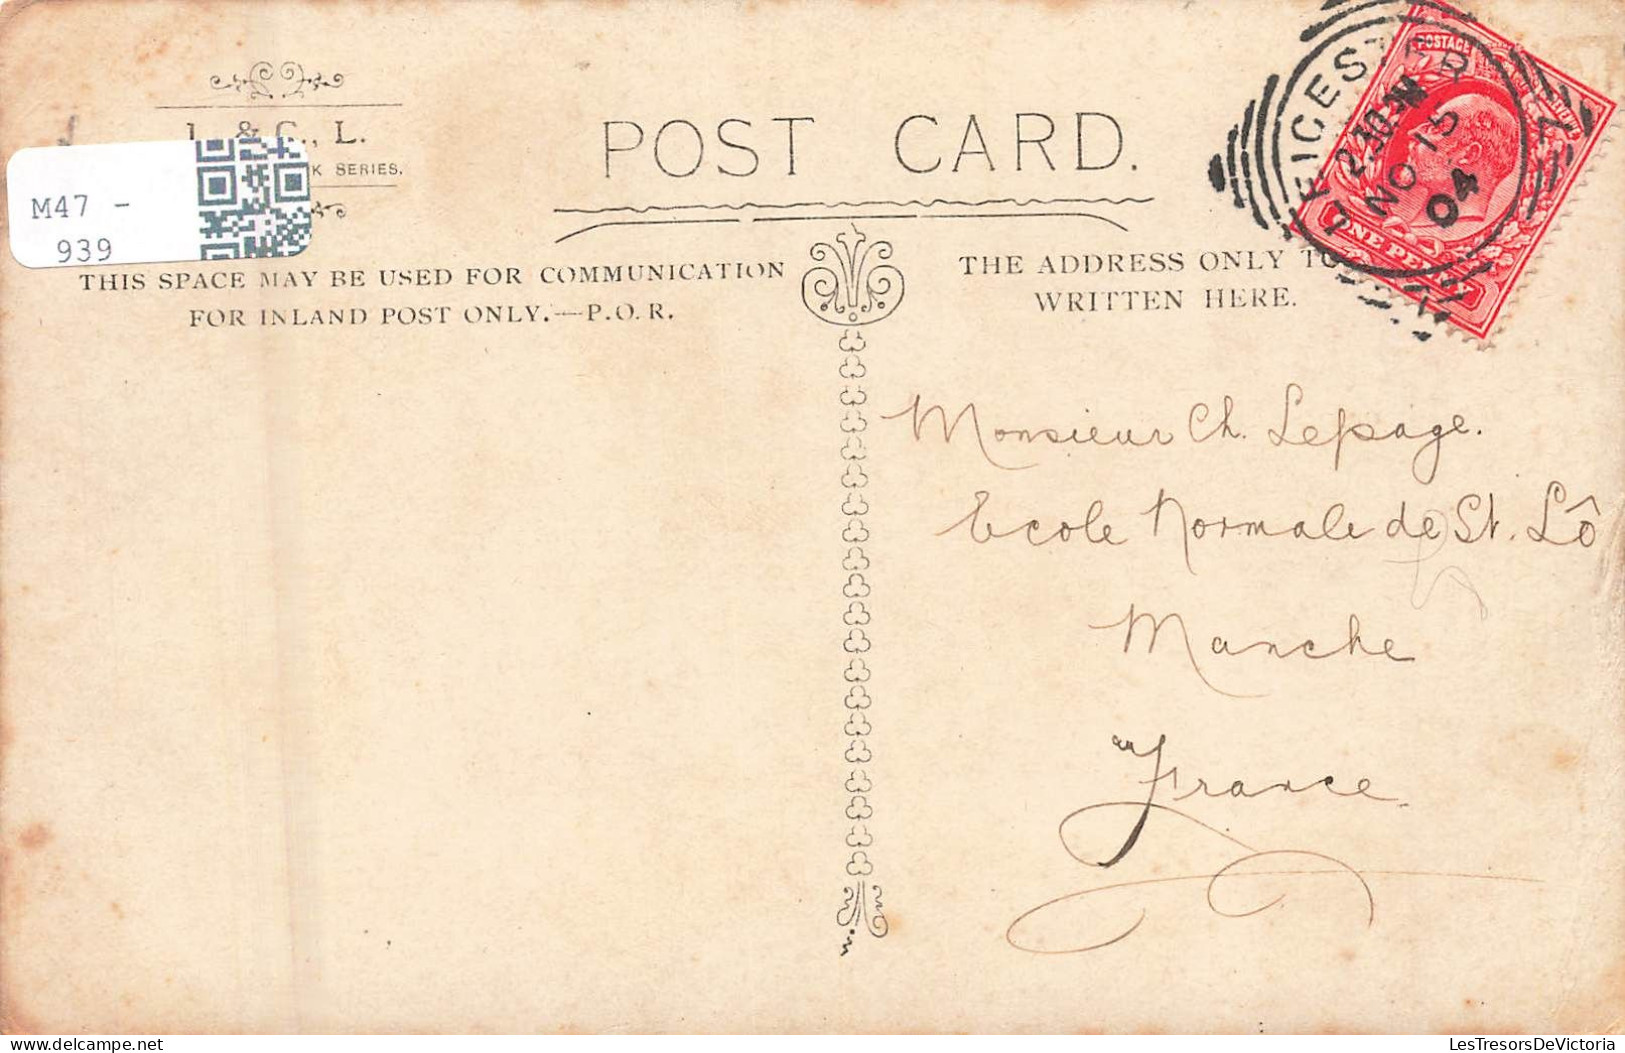 L.
K SERIES.
M47 -
939
POST CARD.
THIS SPACE MAY BE USED FOR COMMUNICATION
FOR INLAND POST ONLY.—P.O.R.
THE ADDRESS ONLY TO
WRITTEN HERE.
POSTAGE
ONE PENNY
LEICESTER
2.30 PM
NO 15
04
Monsieur Ch. Lepage.
Ecole Normale de St. Lô
Manche
France
LesTresorsDeVictoria
delcampe.net